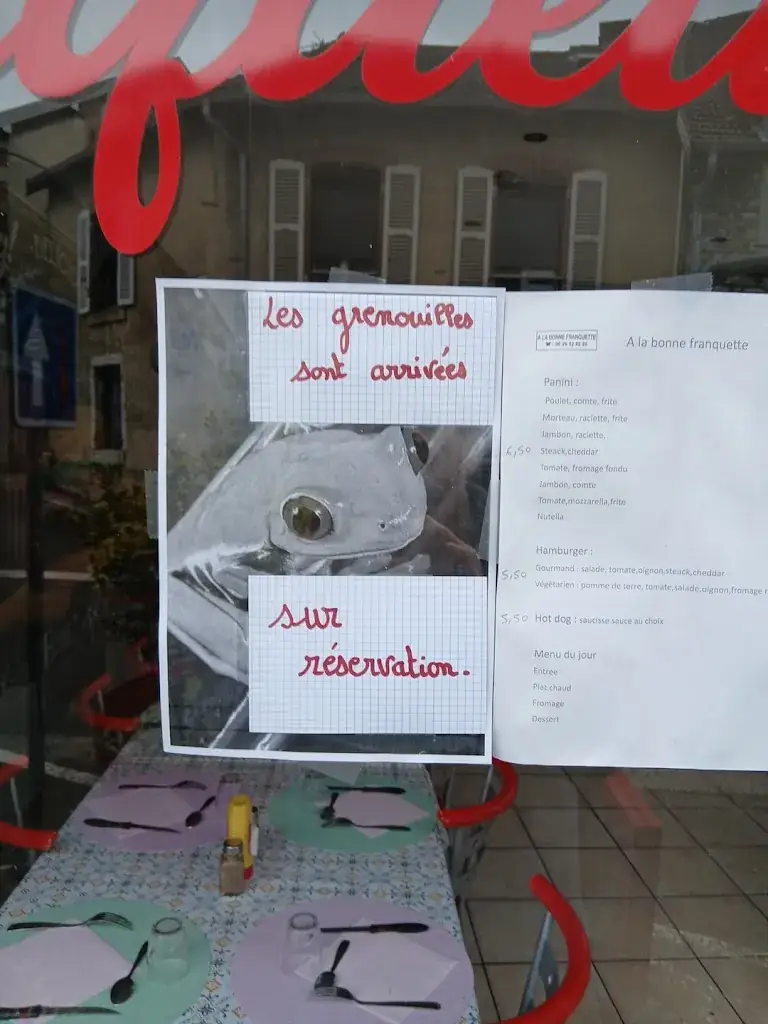 Les grenouilles
sont arrivées
sur
réservation.
A LA BONNE FRANQUETTE
A la bonne franquette
Panini :
Poulet, comte, frite
Morteau, raclette, frite
Jambon, raclette,
Steack,cheddar
Tomate, fromage fondu
Jambon, comte
Tomate,mozzarella,frite
Nutella
Hamburger :
Gourmand : salade, tomate,oignon,steack,cheddar
5,50
Végétarien : pomme de terre, tomate,salade,oignon,fromage r
5,50 Hot dog : saucisse sauce au choix
Menu du jour
Entrée
Plat chaud
Fromage
Dessert